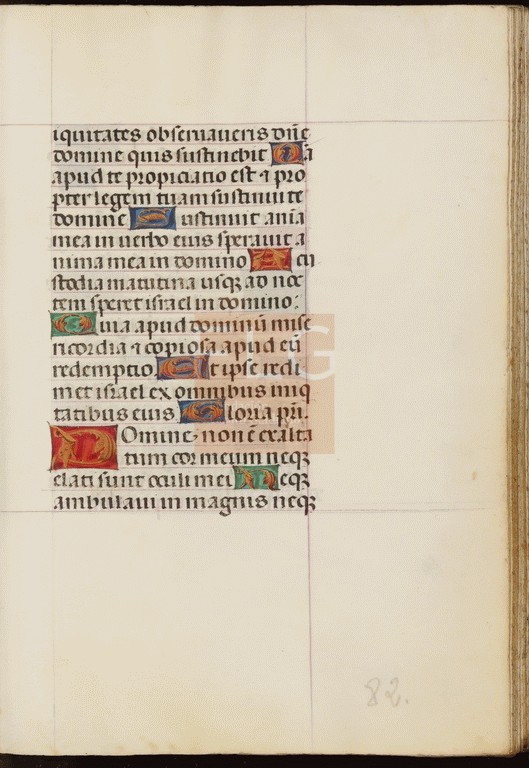 iquitates obseruaueris dn̄e
domine quis sustinebit Quia
apud te propiciatio est ⁊ pro
pter legem tuam sustinui te
domine Sustinuit aīa
mea in uerbo eius sperauit a
nima mea in domino A cu
stodia matutina usqꝫ ad noc
tem speret israel in domino:
Quia apud dominū mise
ricordia ⁊ copiosa apud eū
redemptio Et ipse redi
met israel ex omnibus iniq
tatibus eius Gloria pr̄i.
Domine, non ē exalta
tum cor meum neqꝫ
elati sunt oculi mei Neqꝫ
ambulaui in magnis neqꝫ
82.